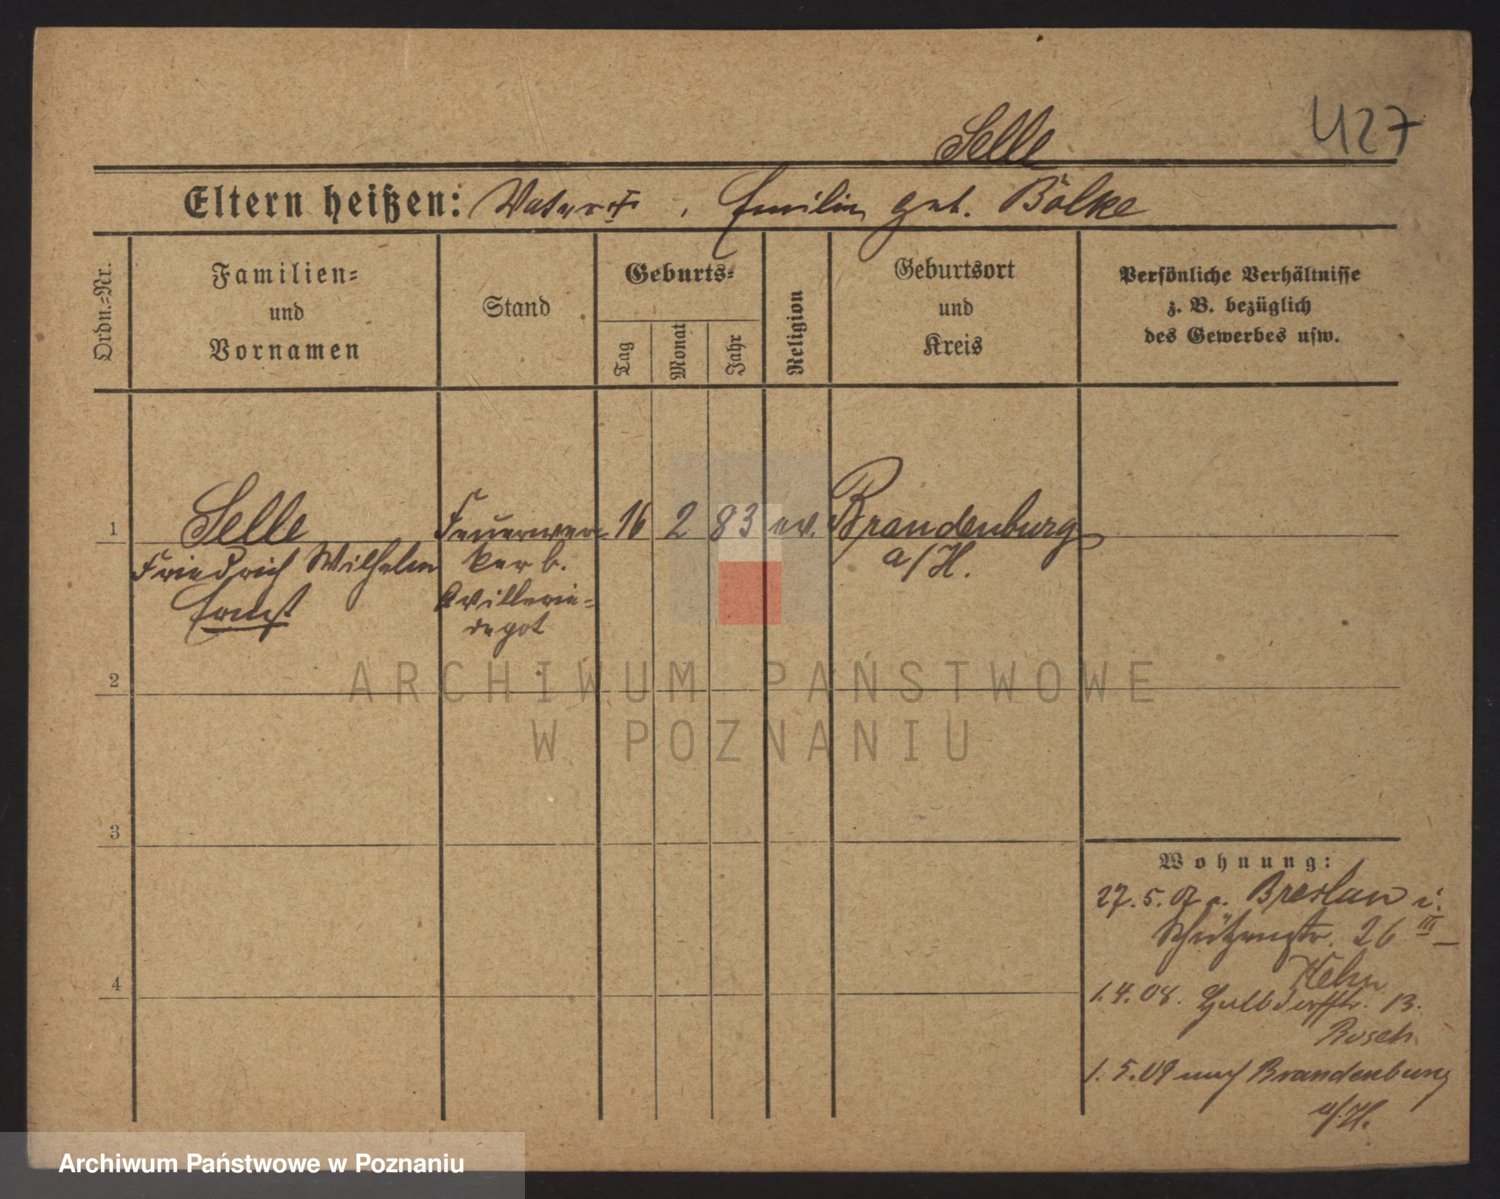 427
Selle
Eltern heißen: Vater †, Emilie geb. Bölke
Ordn.-Nr.
Familien-
und
Vornamen
Stand
Geburts-
Tag
Monat
Jahr
Religion
Geburtsort
und
Kreis
Persönliche Verhältnisse
z. B. bezüglich
des Gewerbes usw.
1
Selle
Friedrich Wilhelm
Ernst
Feuerwer-
ker b.
Artillerie-
depot
16 2 83 ev.
Brandenburg
a/H.
2
3
4
Wohnung:
27.5.07 v. Breslau i.
Schützenstr. 26 III
1.4.08. Halbdorfstr. 13.
Busch
1.5.09 nach Brandenburg
a/H.
ARCHIWUM PAŃSTWOWE
W POZNANIU
Archiwum Państwowe w Poznaniu